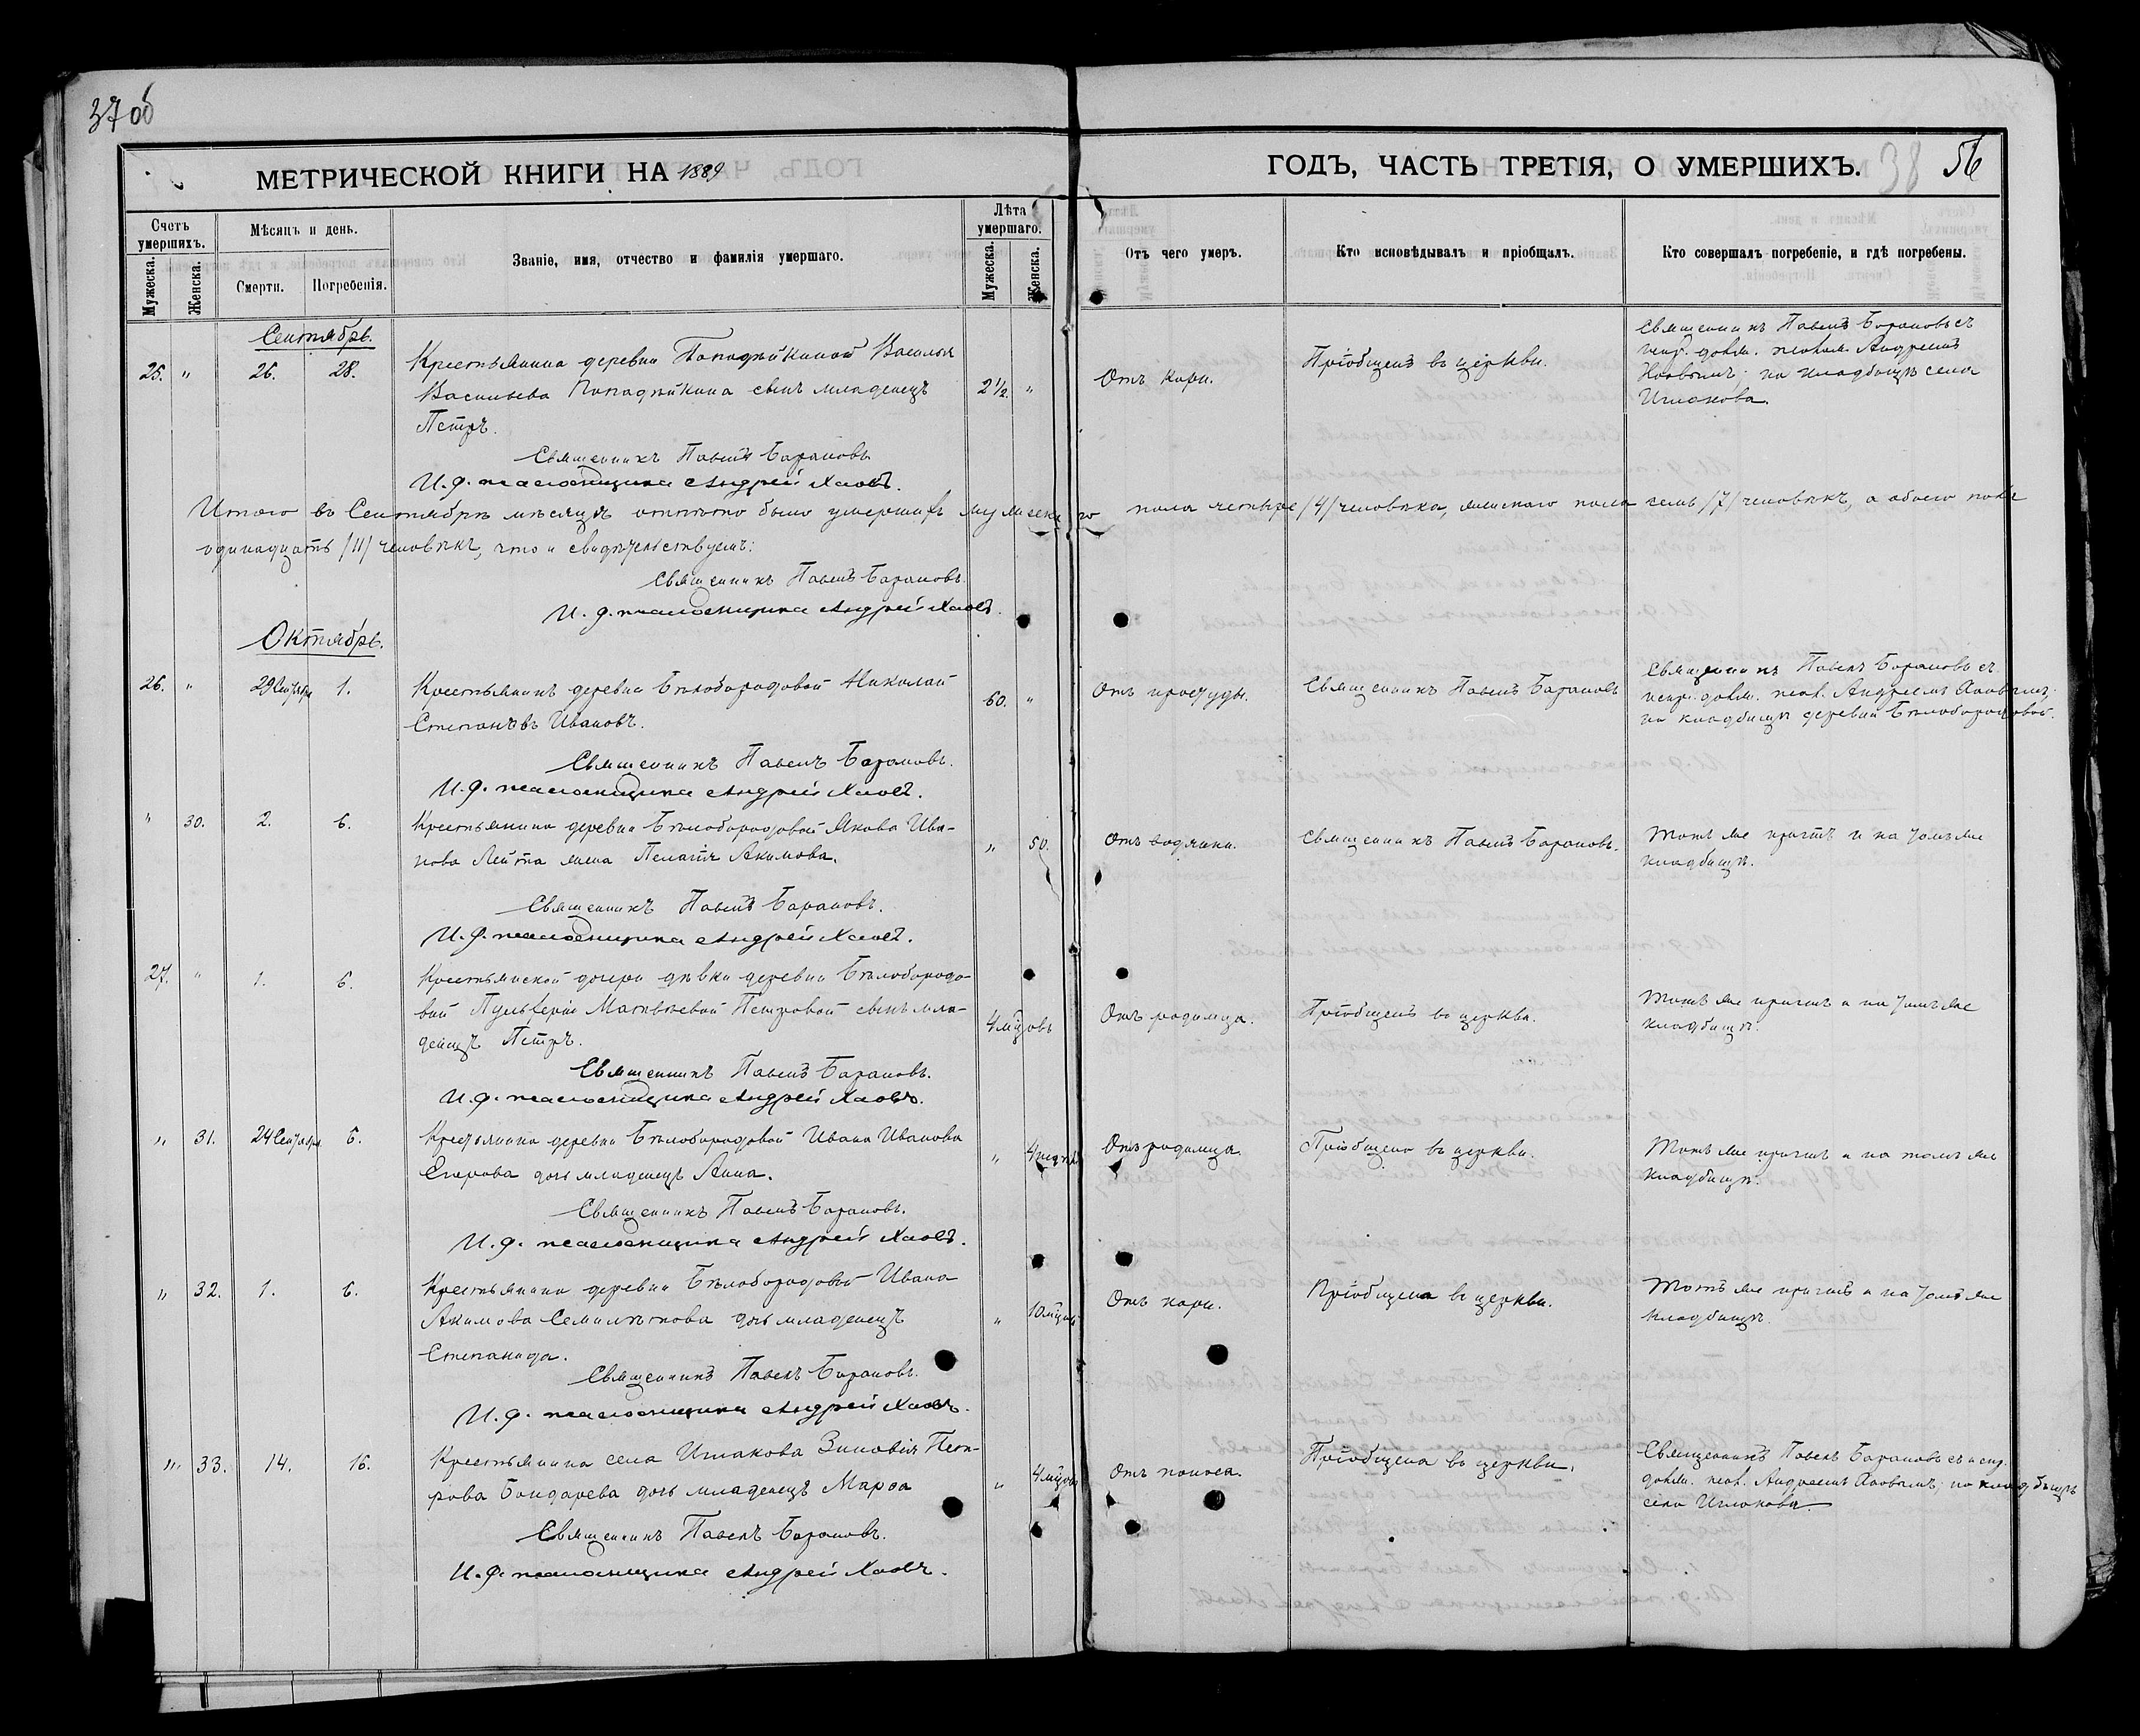 37 об
МЕТРИЧЕСКОЙ КНИГИ НА 1889
ГОДЪ, ЧАСТЬ ТРЕТІЯ, О УМЕРШИХЪ.
38 56
Счетъ умершихъ.
Мужеска.
Женска.
Мѣсяцъ и день.
Смерти.
Погребенія.
Званіе, имя, отчество и фамилія умершаго.
Лѣта умершаго.
Мужеска.
Женска.
Отъ чего умеръ.
Кто исповѣдывалъ и пріобщалъ.
Кто совершалъ погребеніе, и гдѣ погребены.
Сентябрь.
25. " 26. 28.
Крестьянина деревни Попадѣйкиной Василья
Васильева Попадѣйкина сынъ младенецъ
Петръ.
2½. "
Отъ кори.
Пріобщенъ въ церкви.
Священникъ Павелъ Барановъ съ
Андреемъ
на кладбищѣ села
Ишакова.
Священникъ Павелъ Барановъ
И. д. псаломщика Андрей Хаовъ.
Итого въ Сентябрѣ мѣсяцѣ отпѣто было умершихъ мужескаго пола четыре /4/ человѣка, женскаго пола семь /7/ человѣкъ, а обоего пола
одинадцать /11/ человѣкъ, что и свидѣтельствуемъ:
Священникъ Павелъ Барановъ.
И. д. псаломщика Андрей Хаовъ.
Октябрь.
26. " 29 Сентября 1.
Крестьянинъ деревни Бѣлобородовой Николай
Степановъ Ивановъ.
60. "
Отъ простуды.
Священникъ Павелъ Барановъ
Священникъ Павелъ Барановъ съ
Андреемъ Хаовымъ;
на кладбищѣ деревни Бѣлобородовой.
Священникъ Павелъ Барановъ.
И. д. псаломщика Андрей Хаовъ.
" 30. 2. 6.
Крестьянина деревни Бѣлобородовой Якова Ива-
нова жена Акимова.
" 50.
Отъ водянки.
Священникъ Павелъ Барановъ.
Тотъ же причтъ и на томъ же
кладбищѣ.
Священникъ Павелъ Барановъ.
И. д. псаломщика Андрей Хаовъ.
27. " 1. 6.
Крестьянской дочери дѣвки деревни Бѣлобородо-
вой Пульхеріи Матвѣевой Петровой сынъ мла-
денецъ Петръ.
4 м-цовъ
Отъ родимца.
Пріобщенъ въ церкви.
Тотъ же причтъ и на томъ же
кладбищѣ.
Священникъ Павелъ Барановъ.
И. д. псаломщика Андрей Хаовъ.
" 31. 24 Сентября 6.
Крестьянина деревни Бѣлобородовой Ивана Иванова
Егорова дочь младенецъ Анна.
" 4
Отъ родимца.
Пріобщена въ церкви.
Тотъ же причтъ и на томъ же
кладбищѣ.
Священникъ Павелъ Барановъ.
И. д. псаломщика Андрей Хаовъ.
" 32. 1. 6.
Крестьянина деревни Бѣлобородовой Ивана
Акимова Семилѣткова дочь младенецъ
Степанида.
" 10 м-цевъ
Отъ кори.
Пріобщена въ церкви.
Тотъ же причтъ и на томъ же
кладбищѣ.
Священникъ Павелъ Барановъ.
И. д. псаломщика Андрей Хаовъ.
" 33. 14. 16.
Крестьянина села Ишакова Зиновія Пет-
рова Бондарева дочь младенецъ Марѳа
" 4 м-цевъ
Отъ поноса.
Пріобщена въ церкви.
Священникъ Павелъ Барановъ съ
Андреемъ Хаовымъ; на кладбищѣ
села Ишакова.
Священникъ Павелъ Барановъ.
И. д. псаломщика Андрей Хаовъ.